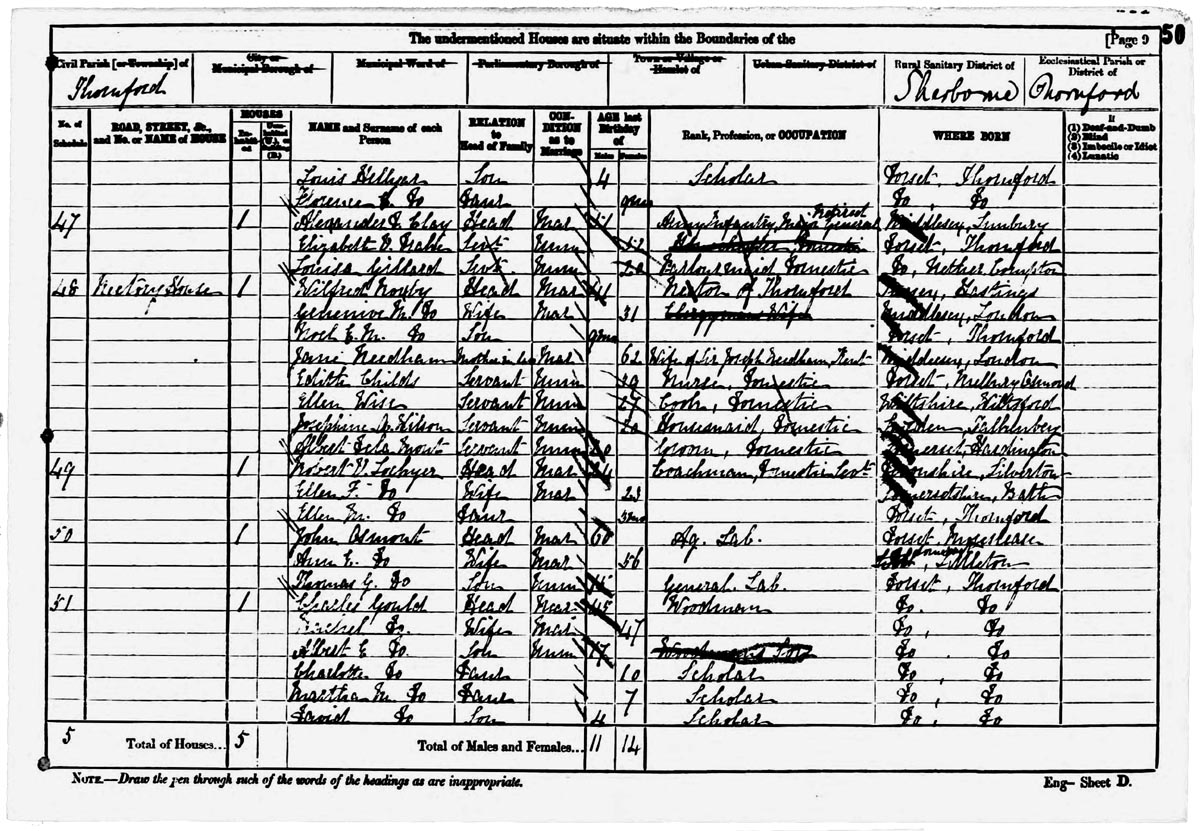 The undermentioned Houses are situate within the Boundaries of the [Page 9 50
Civil Parish [or Township] of City or Municipal Borough of Municipal Ward of Parliamentary Borough of Town or Village or Hamlet of Urban Sanitary District of Rural Sanitary District of Ecclesiastical Parish or District of
Thornford Sherborne Thornford
No. of Schedule ROAD, STREET, &c., and No. or NAME of HOUSE HOUSES Inhabited Uninhabited (U.), or Building (B.) NAME and Surname of each Person RELATION to Head of Family CONDITION as to Marriage AGE last Birthday of Males Females Rank, Profession, or OCCUPATION WHERE BORN If (1) Deaf-and-Dumb (2) Blind (3) Imbecile or Idiot (4) Lunatic
Louis Hellyar Son 4 Scholar Dorset, Thornford
Florence Do Daur 9mo Do, Do
47 1 Alexander Clay Head Mar Army Infantry, Major General Retired Middlesex, Sunbury
Elizabeth Servt Unm 52 Domestic Dorset, Thornford
Louisa Gillard Servt Unm 20 Parlourmaid Domestic Do, Nether Compton
48 Rectory House 1 Wilfred Roxby Head Mar 41 Rector of Thornford Sussex, Hastings
Genevive M. Do Wife Mar 31 Clergymans Wife Middlesex, London
Noel E. M. Do Son 9mo Dorset, Thornford
Jane Needham Mother in law Mar 62 Wife of Sir Joseph Needham, Knt Middlesex, London
Edith Childs Servant Unm Nurse, Domestic Dorset, Melbury Osmond
Ellen Wise Servant Unm 27 Cook, Domestic Wiltshire,
Josephine Wilson Servant Unm 20 Housemaid, Domestic Sweden,
Albert Servant Unm 20 Groom, Domestic Somerset, Hardington
49 1 Robert V. Lockyer Head Mar 24 Coachman, Domestic Servt Devonshire, Silverton
Ellen F. Do Wife Mar 23 Somersetshire, Bath
Ellen M. Do Daur 3mo Dorset, Thornford
50 1 John Osmont Head Mar 60 Ag. Lab. Dorset,
Ann E. Do Wife Mar 56 Somerset, Littleton
Thomas G. Do Son Unm 15 General Lab. Dorset, Thornford
51 1 Charles Gould Head Mar 45 Woodman Do, Do
Rachel Do Wife Mar 47 Do, Do
Albert E. Do Son Unm 17 Woodmans Son Do, Do
Charlotte Do Daur 10 Scholar Do, Do
Martha M. Do Daur 7 Scholar Do, Do
David Do Son 4 Scholar Do, Do
5 Total of Houses... 5 Total of Males and Females... 11 14
NOTE.—Draw the pen through such of the words of the headings as are inappropriate. Eng— Sheet D.